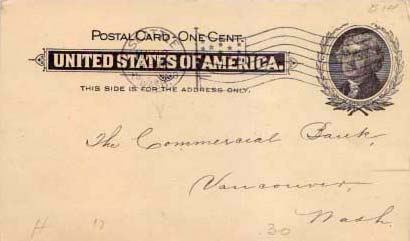 POSTAL CARD - ONE CENT.
UNITED STATES OF AMERICA.
THIS SIDE IS FOR THE ADDRESS ONLY.
The Commercial Bank,
Vancouver,
Wash.
H
.30